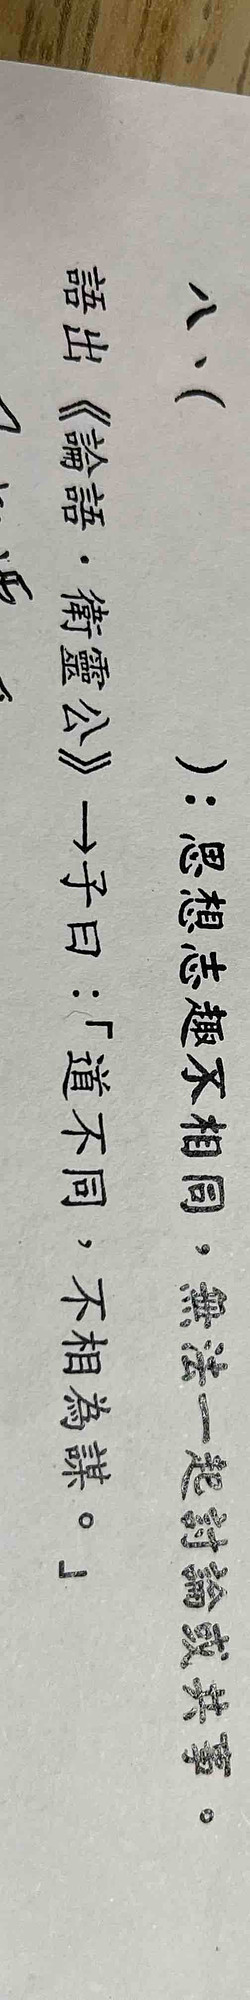 八、(　　　　　):思想志趣不相同，無法一起討論或共事。
語出《論語．衛靈公》→子曰:「道不同，不相為謀。」